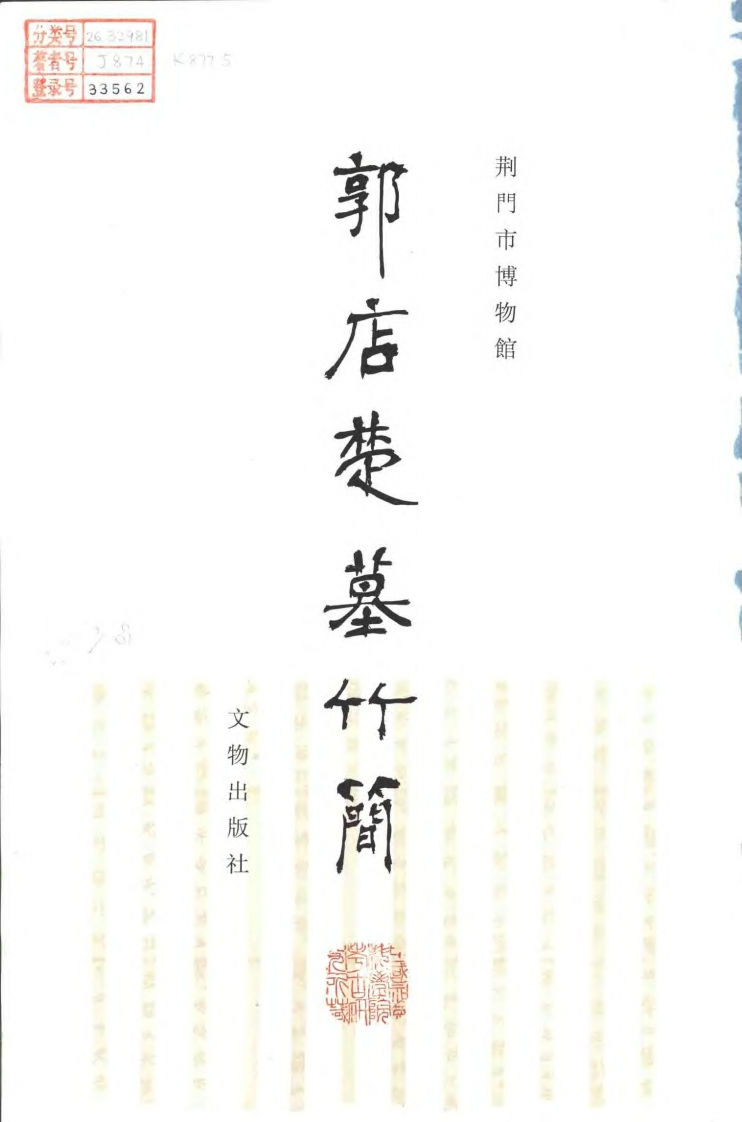 分类号 26.32981
著者号 J874
登录号 33562
K877.5
荆門市博物館
郭店楚墓竹簡
文物出版社